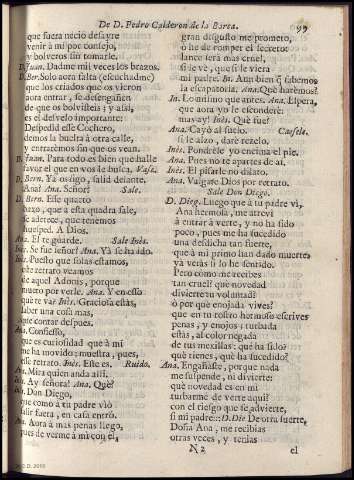 De D. Pedro Calderon de la Barca.
99
que fuera necio desayre
venir à mi por consejo,
y bolveros sin tomarle.
D. Juan. Dadme mil veces los brazos.
D. Ber. Solo aora falta (escuchadme)
que los criados que os vieron
aora entrar, se desengañen
de que os bolvisteis; y assi,
es el desvelo importante:
Despedid esse Cochero,
demos la buelta à otra calle,
y entrarèmos sin que os vean.
D. Juan. Para todo es bien que halle
favor el que en vos le busca. Vase.
D. Bern. Yà os sigo, salid delante.
Ana! Ana. Señor? Sale.
D. Bern. Esse quarto
baxo, que à esta quadra sale,
se aderece, que tenemos
huesped. A Dios.
Ana. El te guarde. Sale Inès.
In. Se fue señor? Ana. Yà se ha ido.
Inès. Puesto que solas estamos,
este retrato veamos
de aquel Adonis, porque
muero por verle. Ana. Y en esso
què te và? Inès. Graciosa estàs,
saber una cosa mas,
que contar despues.
Ana. Confiesso,
que es curiosidad que à mi
me ha movido; muestra, pues,
el retrato. Inès. Este es. Ruido.
Ana. Mira quien anda ai.
Inès. Ay señora! Ana. Què?
Inès. Don Diego,
que como à tu padre viò
salir fuera, en casa entrò.
Ana. Aora à mas penas llego,
pues de verme à mi con el,
gran disgusto me prometo,
ò he de romper el secreto:
lance serà mas cruel,
si le vè, que si le viera
mi padre. In. Aun bien q sabemos
la escapatoria. Ana. Què harèmos?
In. Lo mismo que antes. Ana. Espera,
que aora yo le esconderè:
mas ay! Inès. Què fue?
Ana. Cayò al suelo. Caesele.
si le alzo, darè rezelo.
Inès. Pondrèle yo encima el pie.
Ana. Pues no te apartes de ai.
Inès. El pisarle no dilato.
Ana. Valgate Dios por retrato.
Sale Don Diego.
D. Dieg. Luego que à tu padre vi,
Ana hermosa, me atrevi
à entrar à verte, y no ha sido
poco, pues me ha sucedido
una desdicha tan fuerte,
que à mi primo han dado muerte,
yà veràs si lo he sentido.
Pero còmo me recibes
tan cruel? què novedad
divierte tu voluntad?
ò por què enojada vives?
que en tu rostro hermoso escrives
penas, y enojos; turbada
estàs, al color negada
de tus mexillas: què ha sido?
què tienes, què ha sucedido?
Ana. Engañaste, porque nada
me suspende, ni divierte:
què novedad es en mi
turbarme de verte aqui?
con el riesgo que se advierte,
si mi padre::- D. Die. De otra suerte,
Doña Ana, me recibias
otras veces, y tenias
N 2
el